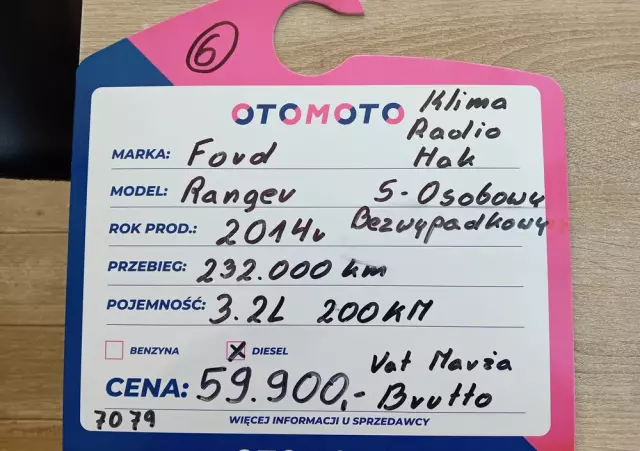 6
OTOMOTO
Klima
Radio
MARKA: Ford Hak
MODEL: Ranger 5-Osobowy
ROK PROD.: 2014r Bezwypadkowy
PRZEBIEG: 232.000 km
POJEMNOŚĆ: 3.2L 200KM
BENZYNA X DIESEL Vat Marża
CENA: 59.900,- Brutto
7079 WIĘCEJ INFORMACJI U SPRZEDAWCY